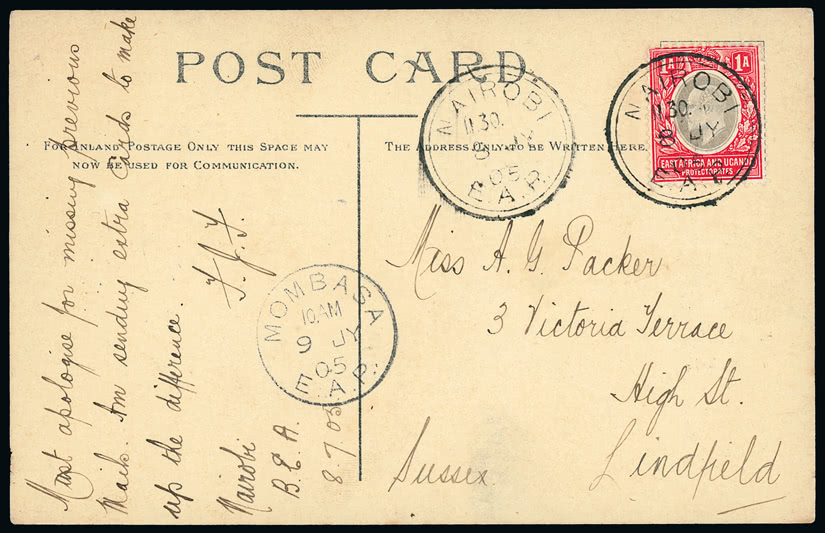 POST CARD
For Inland Postage Only this Space may
now be used for Communication.
The Address Only to be Written Here.
NAIROBI
11 30.
8 JY
05
E.A.P.
NAIROBI
11 30.
8 JY
E.A.P.
1A 1A
EAST AFRICA AND UGANDA
PROTECTORATES
Miss A. G. Packer
3 Victoria Terrace
High St.
Lindfield
Sussex
MOMBASA
10.AM
9 JY
05
E.A.P.
Must apologise for missing previous
mail. Am sending extra cards to make
up the difference.
Nairobi
B.E.A.
8 7 05